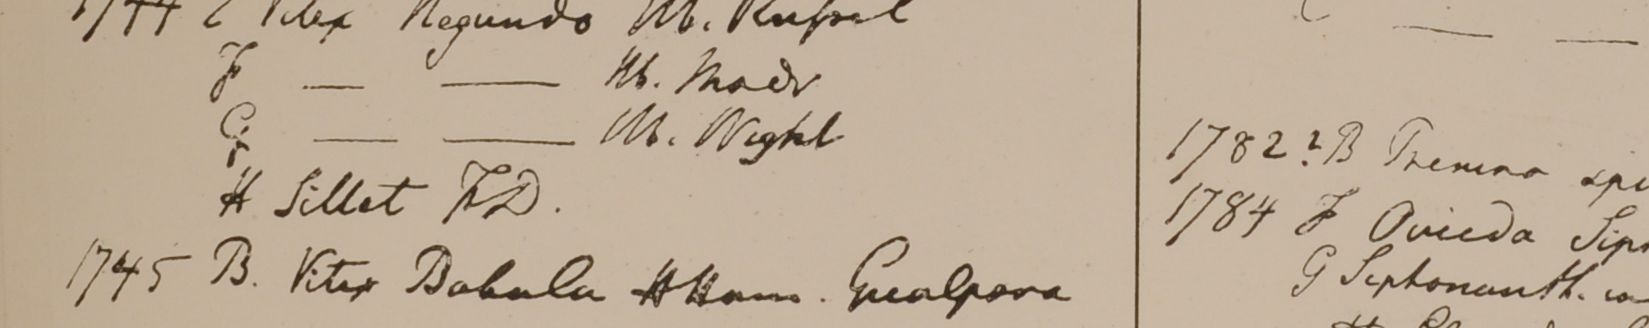 1744 E Vitex Negundo Hb. Russel
F — — Hb. Madr
G — — Hb. Wight
H Sillet F.D.
1745 B. Vitex Babula H Ham. Gualpara
1782? B Premna
1784 F Ovieda
G Siphonanth.